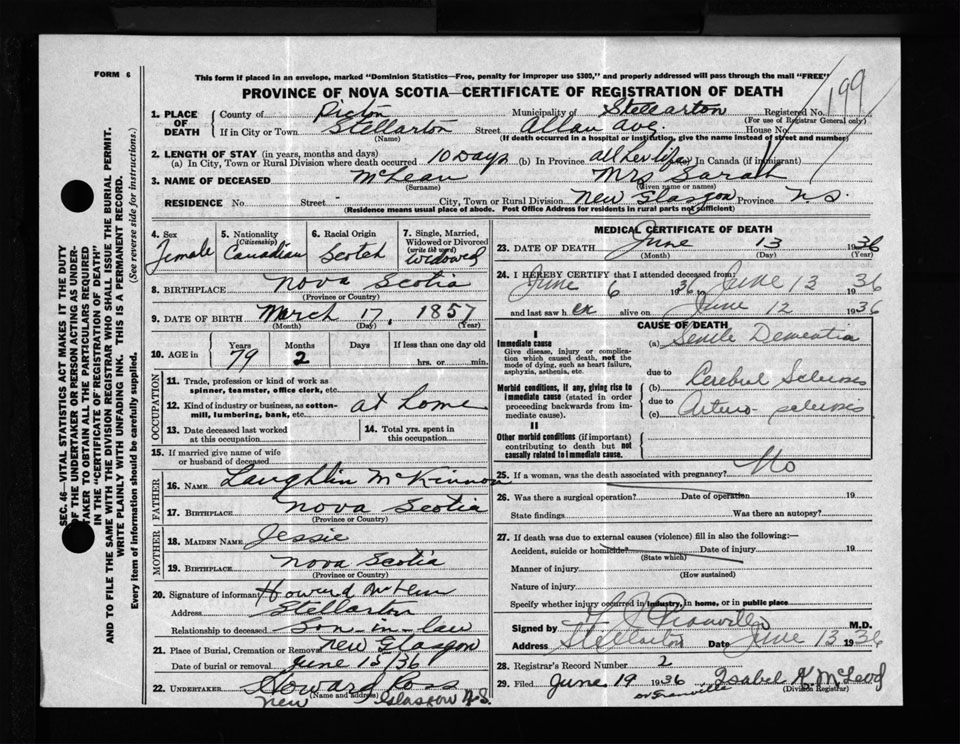 FORM 6
This form if placed in an envelope, marked "Dominion Statistics—Free, penalty for improper use $300," and properly addressed will pass through the mail "FREE"
PROVINCE OF NOVA SCOTIA—CERTIFICATE OF REGISTRATION OF DEATH
199
1. PLACE OF DEATH County of Pictou Municipality of Stellarton Registered No.
(For use of Registrar General only)
If in City or Town Stellarton Street Allan Ave. House No.
(Name) (If death occurred in a hospital or institution, give the name instead of street and number)
2. LENGTH OF STAY (in years, months and days)
(a) In City, Town or Rural Division where death occurred 10 Days (b) In Province all her life (c) In Canada (if immigrant)
3. NAME OF DECEASED McLean Mrs Sarah
(Surname) (Given name or names)
RESIDENCE No. Street - City, Town or Rural Division New Glasgow Province N.S.
(Residence means usual place of abode. Post Office Address for residents in rural parts not sufficient)
4. Sex Female
5. Nationality (Citizenship) Canadian
6. Racial Origin Scotch
7. Single, Married, Widowed or Divorced (write the word) Widowed
8. BIRTHPLACE Nova Scotia
(Province or Country)
9. DATE OF BIRTH March 17, 1857
(Month) (Day) (Year)
10. AGE in Years 79 Months 2 Days If less than one day old
hrs. or min.
OCCUPATION
11. Trade, profession or kind of work as spinner, teamster, office clerk, etc.
12. Kind of industry or business, as cotton-mill, lumbering, bank, etc. at home
13. Date deceased last worked at this occupation
14. Total yrs. spent in this occupation
15. If married give name of wife or husband of deceased
FATHER
16. NAME Laughlin McKinnon
17. BIRTHPLACE Nova Scotia
(Province or Country)
MOTHER
18. MAIDEN NAME Jessie
19. BIRTHPLACE Nova Scotia
(Province or Country)
20. Signature of informant Howard
Address Stellarton
Relationship to deceased Son-in-law
21. Place of Burial, Cremation or Removal New Glasgow
Date of burial or removal June 15/36
22. UNDERTAKER Howard Ross
(Name and address)
New Glasgow N.S.
MEDICAL CERTIFICATE OF DEATH
23. DATE OF DEATH June 13 1936
(Month) (Day) (Year)
24. I HEREBY CERTIFY that I attended deceased from:
June 6 1936 to June 13 1936
and last saw her alive on June 12 1936
CAUSE OF DEATH
I
Immediate cause
Give disease, injury or complication which caused death, not the mode of dying, such as heart failure, asphyxia, asthenia, etc.
(a) Senile Dementia
due to
Morbid conditions, if any, giving rise to immediate cause (stated in order proceeding backwards from immediate cause).
(b) Cerebral Sclerosis
due to
(c) Arterio-sclerosis
II
Other morbid conditions (if important) contributing to death but not causally related to immediate cause.
25. If a woman, was the death associated with pregnancy? No
26. Was there a surgical operation? Date of operation 19
State findings Was there an autopsy?
27. If death was due to external causes (violence) fill in also the following:—
Accident, suicide or homicide? Date of injury 19
(State which)
Manner of injury
(How sustained)
Nature of injury
Specify whether injury occurred in industry, in home, or in public place
Signed by Granville M.D.
Address Stellarton Date June 13 1936
28. Registrar's Record Number 2
29. Filed June 19 1936 Isabel McLeod
(Division Registrar)
Dr Granville
SEC. 46—VITAL STATISTICS ACT MAKES IT THE DUTY
OF THE UNDERTAKER OR PERSON ACTING AS UNDER-
TAKER TO OBTAIN ALL THE PARTICULARS REQUIRED
IN THE "CERTIFICATE OF REGISTRATION OF DEATH"
AND TO FILE THE SAME WITH THE DIVISION REGISTRAR WHO SHALL ISSUE THE BURIAL PERMIT.
WRITE PLAINLY WITH UNFADING INK. THIS IS A PERMANENT RECORD.
Every item of information should be carefully supplied. (See reverse side for instructions.)